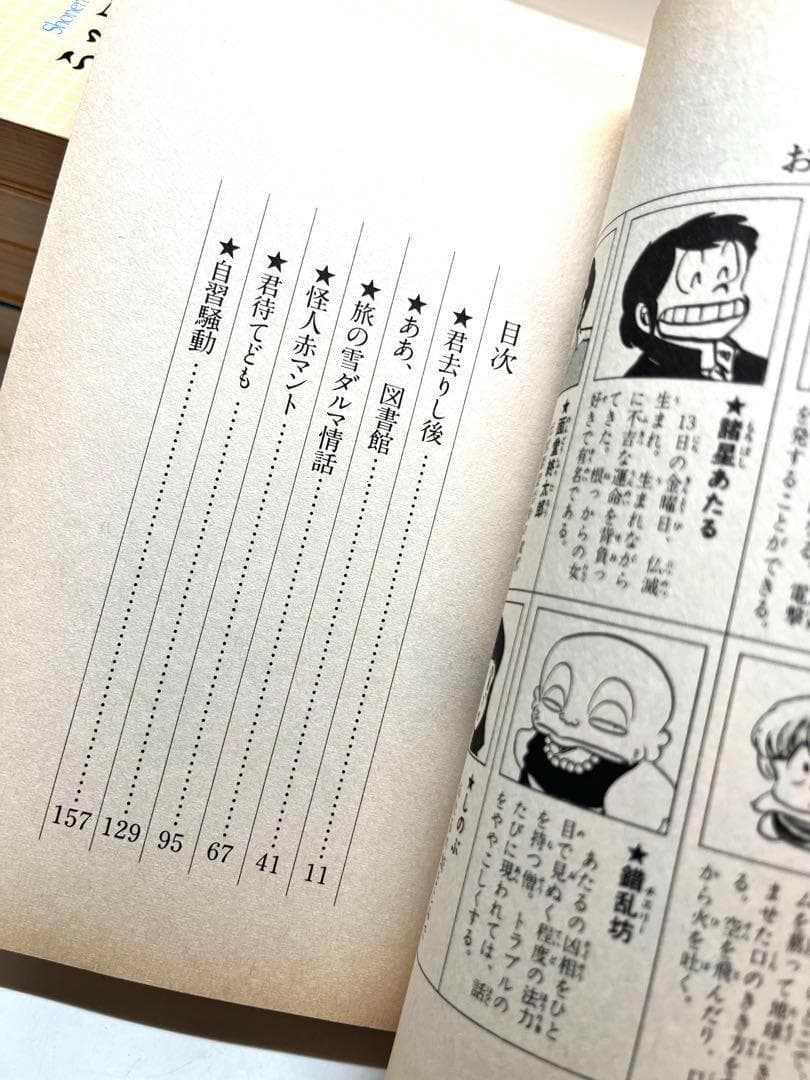 Shonen
目次
★君去りし後……11
★ああ、図書館……41
★旅の雪ダルマ情話……67
★怪人赤マント……95
★君待てども……129
★自習騒動……157
お
電撃
を発することができる。
★諸星あたる
13日の金曜日、仏滅
生まれ。生まれながら
に不吉な運命を背負っ
てきた。根っからの女
好きで有名である。
★面堂終太郎
★錯乱坊
チェリー
あたるの凶相をひと
目で見ぬく程度の法力
を持つ僧。トラブルの
たびに現われては、話
をややこしくする。
★しのぶ
ませた口のきき方を
る。空を飛んだり、口
から火を吐く。